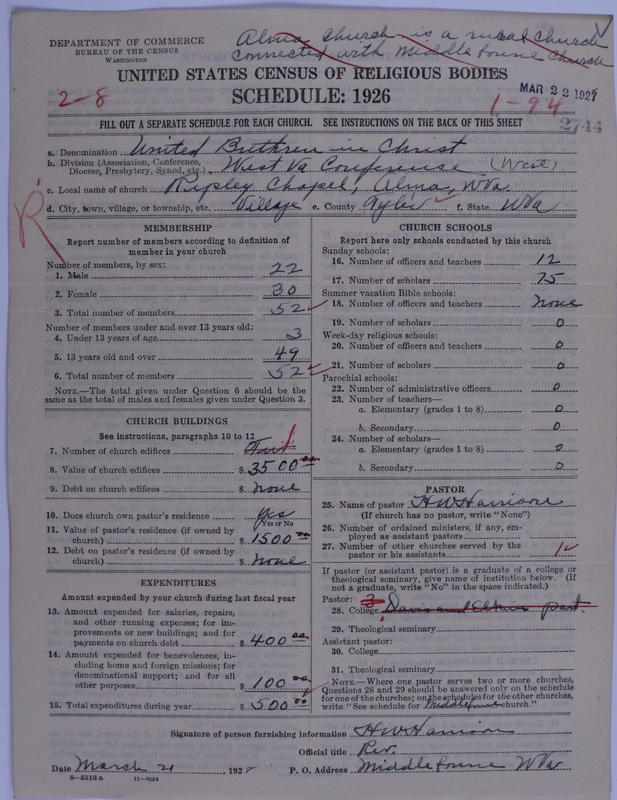 Alma Church is a rural church
connected with Middlebourne Church
DEPARTMENT OF COMMERCE
BUREAU OF THE CENSUS
WASHINGTON
UNITED STATES CENSUS OF RELIGIOUS BODIES
SCHEDULE: 1926
MAR 22 1927
2-8
1-94
FILL OUT A SEPARATE SCHEDULE FOR EACH CHURCH. SEE INSTRUCTIONS ON THE BACK OF THIS SHEET
2744
a. Denomination United Brethren in Christ
b. Division (Association, Conference, Diocese, Presbytery, Synod, etc.) West Va Conference (West)
c. Local name of church Ripley Chapel, Alma, W Va.
d. City, town, village, or township, etc. Village e. County Tyler f. State W Va
R
MEMBERSHIP
Report number of members according to definition of
member in your church
Number of members, by sex:
1. Male 22
2. Female 30
3. Total number of members 52
Number of members under and over 13 years old:
4. Under 13 years of age 3
5. 13 years old and over 49
6. Total number of members 52
NOTE.—The total given under Question 6 should be the
same as the total of males and females given under Question 3.
CHURCH BUILDINGS
See instructions, paragraphs 10 to 12
7. Number of church edifices 1
8. Value of church edifices $ 3500.00
9. Debt on church edifices $ none
10. Does church own pastor's residence yes
Yes or No
11. Value of pastor's residence (if owned by
church) $ 1500.00
12. Debt on pastor's residence (if owned by
church) $ none
EXPENDITURES
Amount expended by your church during last fiscal year
13. Amount expended for salaries, repairs,
and other running expenses; for im-
provements or new buildings; and for
payments on church debt $ 400.00
14. Amount expended for benevolences, in-
cluding home and foreign missions; for
denominational support; and for all
other purposes $ 100.00
15. Total expenditures during year $ 500.00
CHURCH SCHOOLS
Report here only schools conducted by this church
Sunday schools:
16. Number of officers and teachers 12
17. Number of scholars 75
Summer vacation Bible schools:
18. Number of officers and teachers none
19. Number of scholars 0
Week-day religious schools:
20. Number of officers and teachers 0
21. Number of scholars 0
Parochial schools:
22. Number of administrative officers 0
23. Number of teachers—
a. Elementary (grades 1 to 8) 0
b. Secondary 0
24. Number of scholars—
a. Elementary (grades 1 to 8) 0
b. Secondary 0
PASTOR
25. Name of pastor H W Harrison
(If church has no pastor, write "None")
26. Number of ordained ministers, if any, em-
ployed as assistant pastors
27. Number of other churches served by the
pastor or his assistants 1
If pastor (or assistant pastor) is a graduate of a college or
theological seminary, give name of institution below. (If
not a graduate, write "No" in the space indicated.)
Pastor: 3
28. College Davis and Elkins part.
29. Theological seminary
Assistant pastor:
30. College
31. Theological seminary
NOTE.—Where one pastor serves two or more churches,
Questions 28 and 29 should be answered only on the schedule
for one of the churches; on the schedules for the other churches,
write "See schedule for Middlebourne church."
Signature of person furnishing information H W Harrison
Official title Rev.
Date March 21, 192 P. O. Address Middlebourne W Va
8-5518 a 11-9054